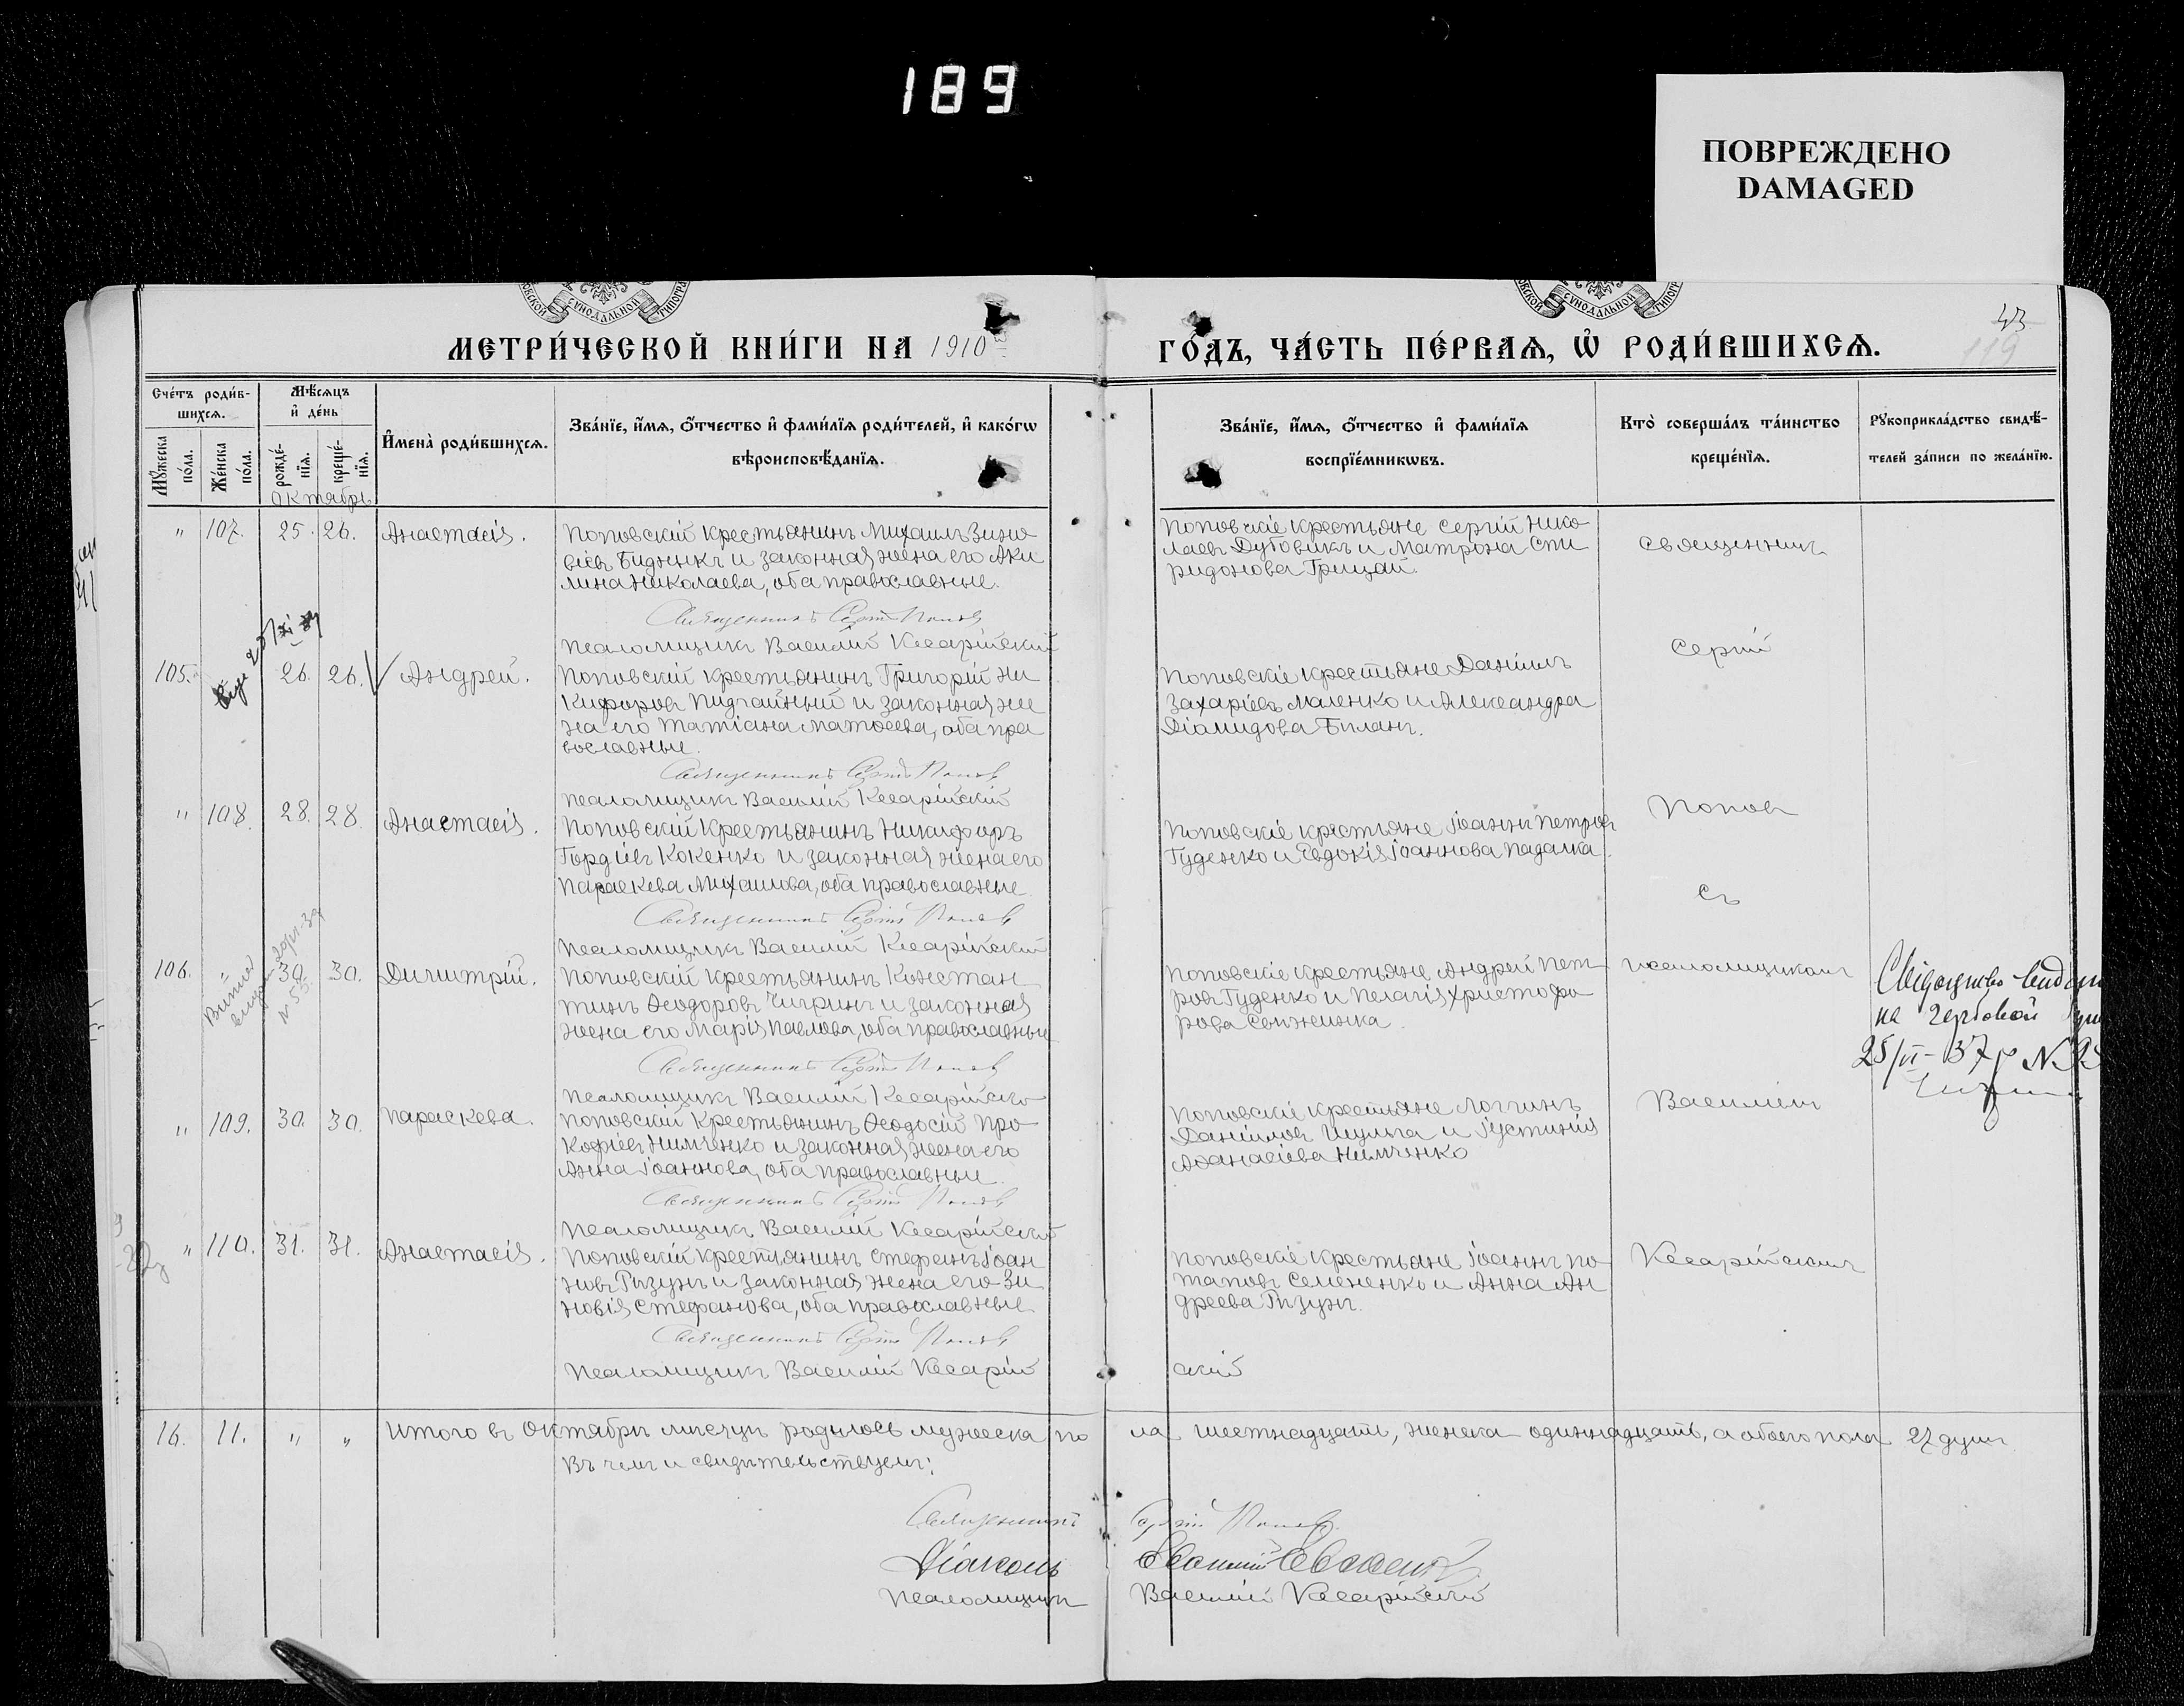 189
ПОВРЕЖДЕНО
DAMAGED
МЕТРИ́ЧЕСКОЙ КНИ́ГИ НА 1910
ГО́ДЪ, ЧА́СТЬ ПЕ́РВАѦ, Ѡ҆ РОДИ́ВШИХСѦ.
119
Сче́тъ роди́в-
шихсѧ.
Мѣ́сѧцъ
и҆ де́нь
Мꙋ́жеска по́ла.
Же́нска по́ла.
рожде́-
нїѧ.
креще́-
нїѧ.
И҆мена̀ роди́вшихсѧ.
Зва́нїе, и҆́мѧ, ѻ҆́тчество и҆ фами́лїѧ роди́телей, и҆ како́гѡ
вѣроисповѣ́данїѧ.
Зва́нїе, и҆́мѧ, ѻ҆́тчество и҆ фами́лїѧ
воспрїе́мникѡвъ.
Кто̀ соверша́лъ та́инство
креще́нїѧ.
Рꙋкоприкла́дство свидѣ́-
телей за́писи по жела́нїю.
Октябрь
" 107. 25. 26. Анастасія.
Поповскій крестьянинъ Михаилъ Зино
віевъ Бидненкъ и законная жена его Аки
лина Николаева, оба православные.
Священникъ Сергій Поповъ
Псаломщикъ Василій Кесарійскій
Поповскіе крестьяне Сергій Нико
лаевъ Дубовикъ и Матрона Спи
ридонова Грицай.
Священникъ
105. 26. 26. Андрей.
Поповскій крестьянинъ Григорій Ни
кифоровъ Пидгайный и законная же
на его Татіана Матѳеева, оба пра
вославные.
Священникъ Сергій Поповъ
Псаломщикъ Василій Кесарійскій
Поповскіе крестьяне Даніилъ
Захаріевъ Маленко и Александра
Діомидова Биланъ.
Сергій
" 108. 28. 28. Анастасія.
Поповскій крестьянинъ Никифоръ
Гордіевъ Кокенко и законная жена его
Параскева Михаилова, оба православные
Священникъ Сергій Поповъ
Псаломщикъ Василій Кесарійскій
Поповскіе крестьяне Іоаннъ Петровъ
Гуденко и Евдокія Іоаннова Падалка.
Поповъ
съ
106. " 30. 30. Димитрій.
Поповскій крестьянинъ Констан
тинъ Ѳеодоровъ Чигринъ и законная
жена его Марія Павлова, оба православные
Священникъ Сергій Поповъ
Псаломщикъ Василій Кесарійскій
Поповскіе крестьяне Андрей Пет
ровъ Гуденко и Пелагія Христофо
рова
псаломщикомъ
на гербовой
" 109. 30. 30. Параскева.
Поповскій крестьянинъ Ѳеодосій Про
кофіевъ Нимченко и законная жена его
Анна Іоаннова, оба православные
Священникъ Сергій Поповъ
Псаломщикъ Василій Кесарійскій
Поповскіе крестьяне Логгинъ
Даніиловъ Шульга и Іустинія
Аѳанасіева Нимченко
Василіемъ
" 110. 31. 31. Анастасія.
Поповскій крестьянинъ Стефанъ Іоан
новъ Ризунъ и законная жена его Зи
новія Стефанова, оба православные
Священникъ Сергій Поповъ
Псаломщикъ Василій Кесарій
скій
Поповскіе крестьяне Іоаннъ По
таповъ Семененко и Анна Ан
дреева Ризунъ.
Кесарійскимъ
16. 11. " " Итого въ Октябрѣ мѣсяцѣ родилось мужеска по
ла шестнадцать, женска одиннадцать, а обоего пола 27 душъ
Въ чемъ и свидѣтельствуемъ:
Священникъ Сергій Поповъ
Діаконъ
Псаломщикъ Василій Кесарійскій